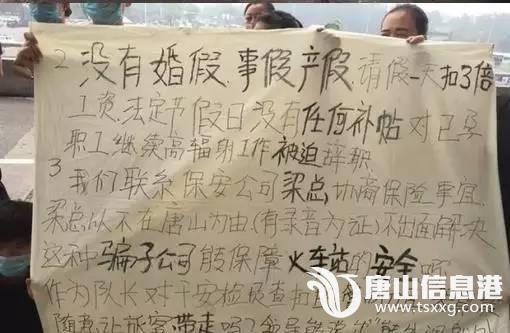 2 没有婚假,事假产假,请假一天扣3倍
工资,法定节假日没有任何补帖对已孕
职工继续高辐射工作被迫辞职
3 我们联系保安公司梁总协商保险事宜
梁总以不在唐山为由(有录音为证)不出面解决
这种骗子公司能保障火车站的安全吗
作为队长对于安检员查扣
随意让旅客带走吗?
唐山信息港
www.tsxxg.com